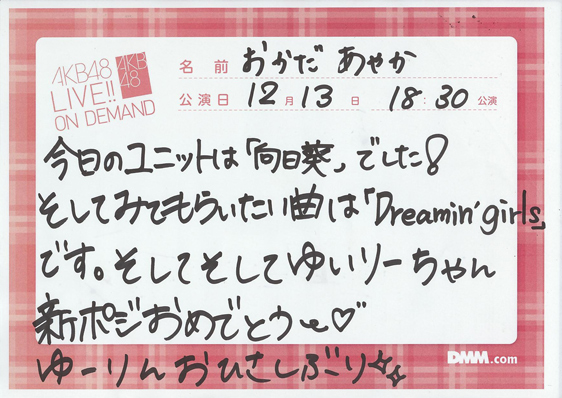 AKB48
LIVE!!
ON DEMAND
AKB
48
名前 おかだ あやか
公演日 12月13日 18:30公演
今日のユニットは「向日葵」でした!
そしてみてもらいたい曲は「Dreamin'girls」
です。そしてそしてゆいりーちゃん
新ポジおめでとう♡
ゆーりんおひさしぶり
DMM.com